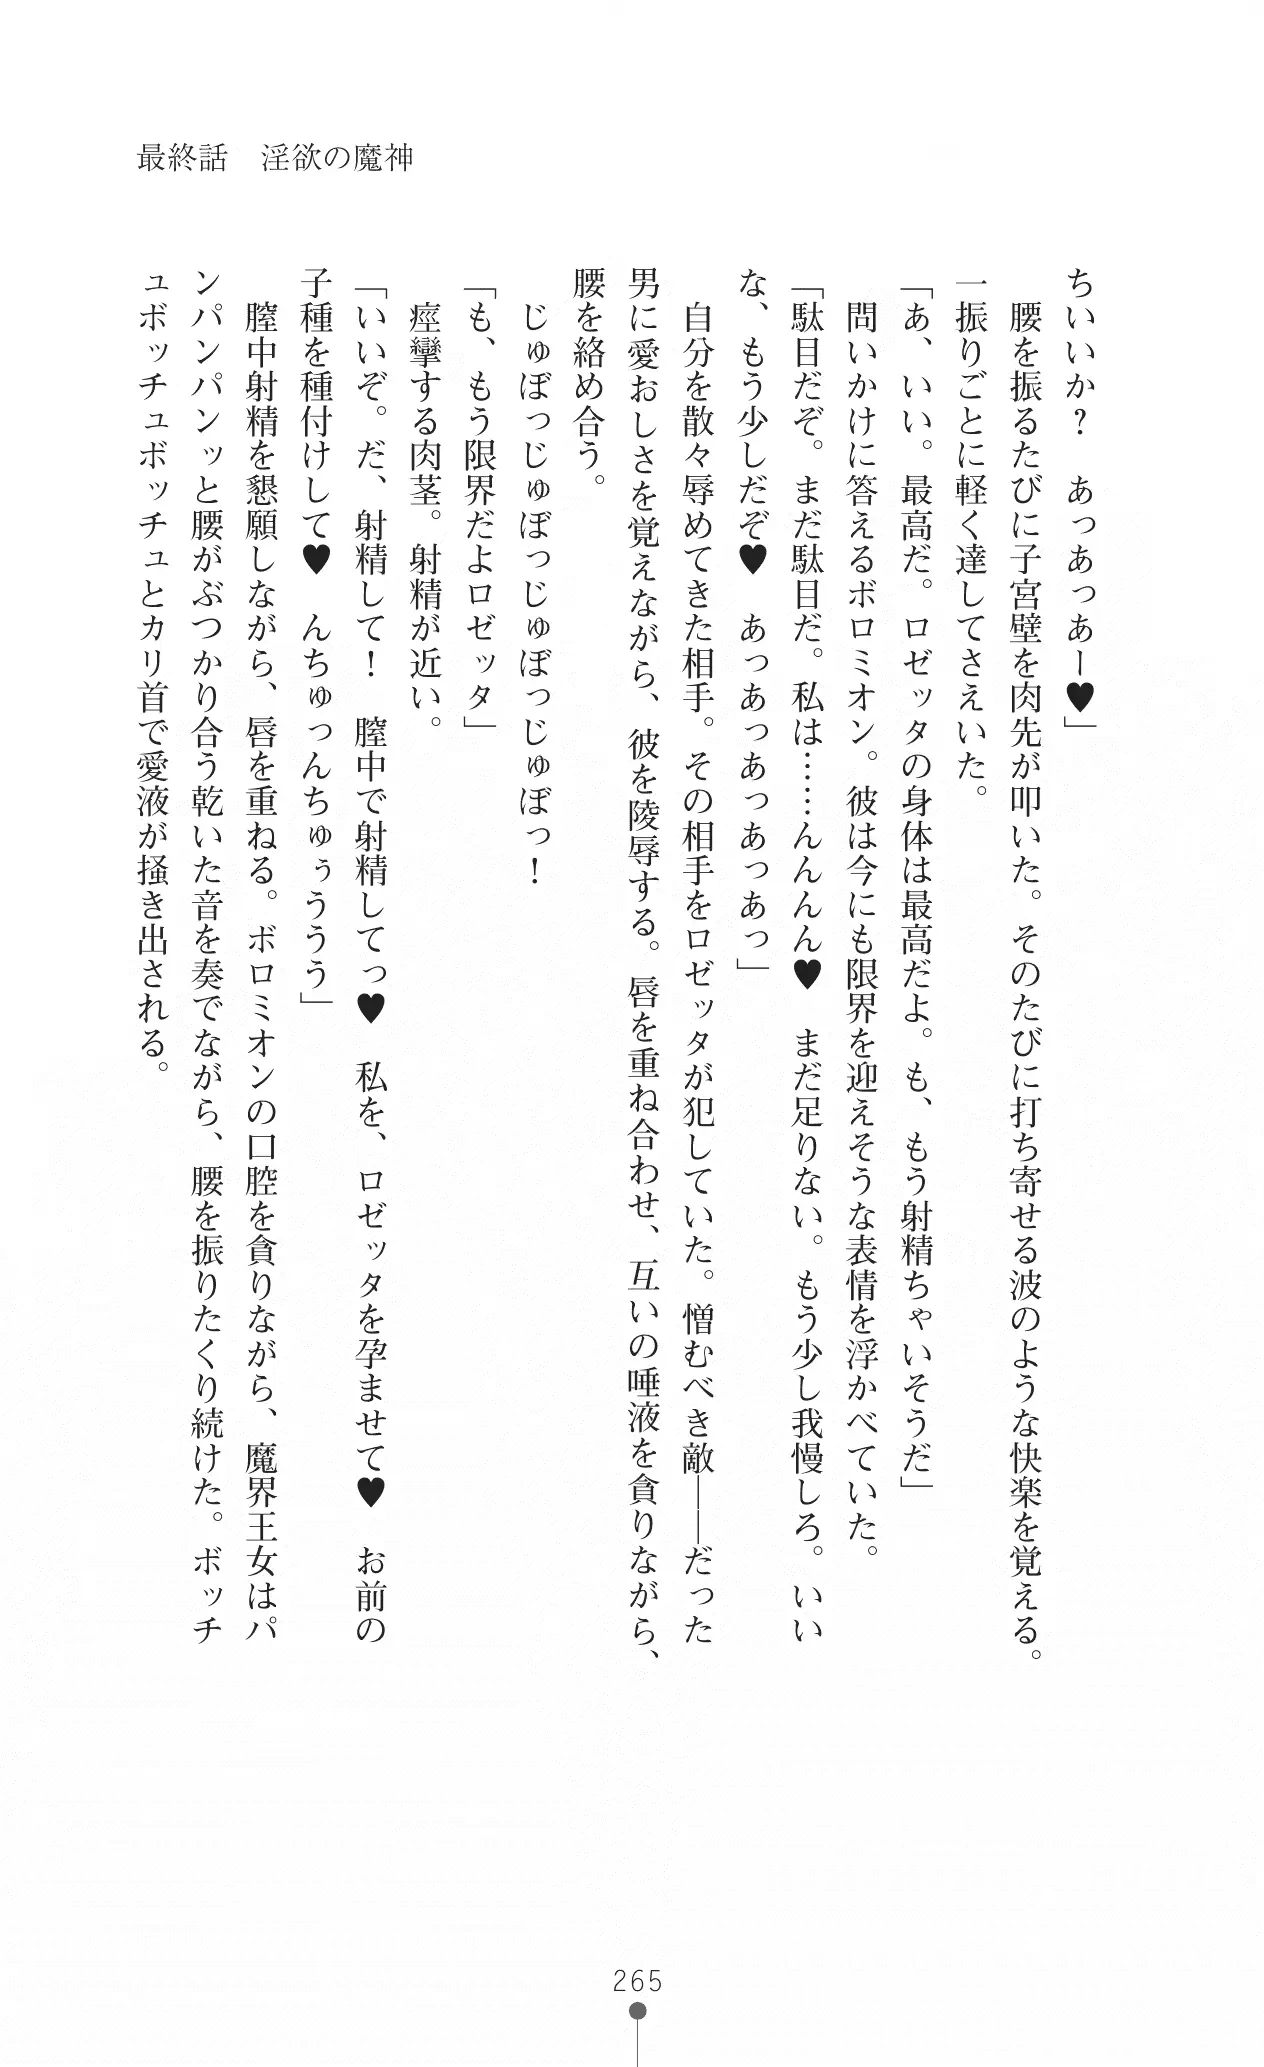 最終話　淫欲の魔神
ちいいか？　あっあっあー♥」
　腰を振るたびに子宮壁を肉先が叩いた。そのたびに打ち寄せる波のような快楽を覚える。
一振りごとに軽く達してさえいた。
「あ、いい。最高だ。ロゼッタの身体は最高だよ。も、もう射精ちゃいそうだ」
　問いかけに答えるボロミオン。彼は今にも限界を迎えそうな表情を浮かべていた。
「駄目だぞ。まだ駄目だ。私は……んんんん♥　まだ足りない。もう少し我慢しろ。いい
な、もう少しだぞ♥　あっあっあっあっあっ」
　自分を散々辱めてきた相手。その相手をロゼッタが犯していた。憎むべき敵――だった
男に愛おしさを覚えながら、彼を陵辱する。唇を重ね合わせ、互いの唾液を貪りながら、
腰を絡め合う。
　じゅぼっじゅぼっじゅぼっじゅぼっ！
「も、もう限界だよロゼッタ」
　痙攣する肉茎。射精が近い。
「いいぞ。だ、射精して！　膣中で射精してっ♥　私を、ロゼッタを孕ませて♥　お前の
子種を種付けして♥　んちゅっんちゅぅううう」
　膣中射精を懇願しながら、唇を重ねる。ボロミオンの口腔を貪りながら、魔界王女はパ
ンパンパンッと腰がぶつかり合う乾いた音を奏でながら、腰を振りたくり続けた。ボッチ
ュボッチュボッチュとカリ首で愛液が掻き出される。
265